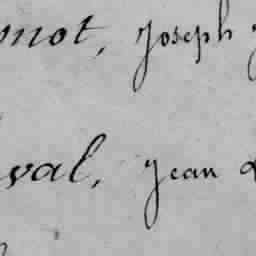 mot, Joseph
val, Jean